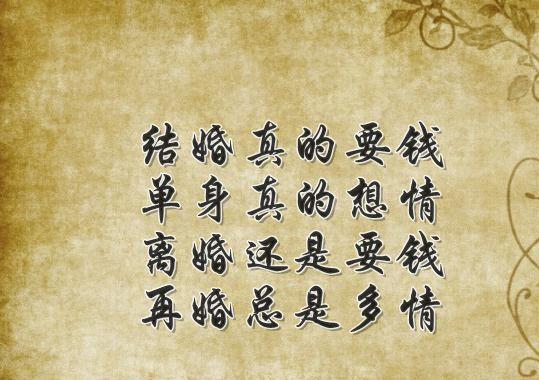 结婚真的要钱
单身真的想情
离婚还是要钱
再婚总是多情